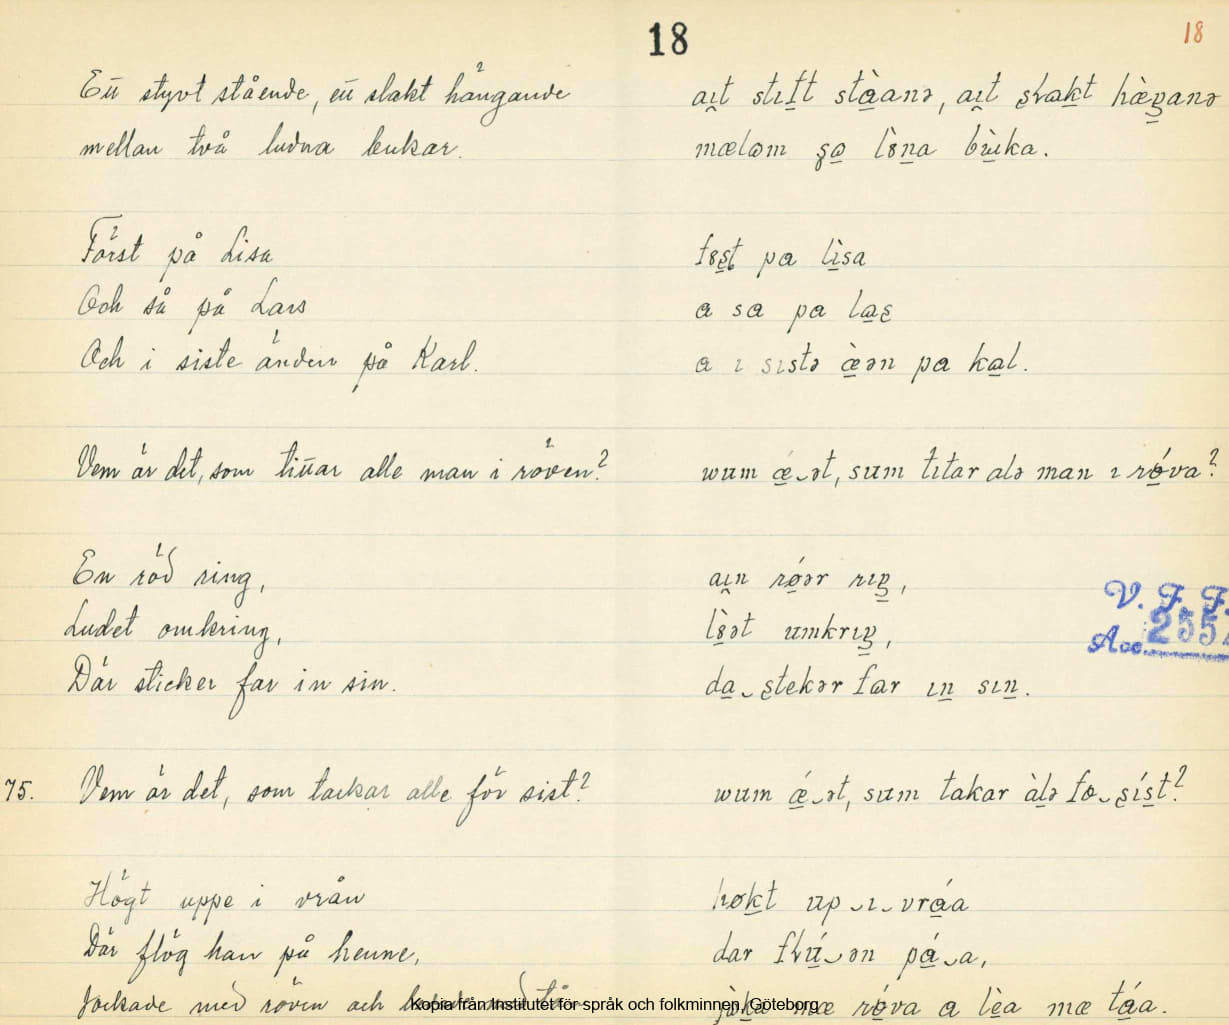 18
18
Ett styvt stående, ett slakt hängande
mellan två ludna bukar.
Först på Lisa
Och så på Lars
Och i siste änden på Karl.
Vem är det, som tittar alle man i röven?
En röd ring,
Ludet omkring,
Där sticker far in sin.
75. Vem är det, som tackar alle för sist?
Högt uppe i vrån
Där flög han på henne,
Jockade med röven och
aı̯t stıft stàanə, aı̯t ʂlakt hæ̀ŋanə
mælom ʂo lȍna bùka.
fɵʂt pa lìsa
a sa pa laʂ
a ı sıstə æ̀ən pa kal.
wum ǽ‿ət, sum tıtar alə man ı rǿva?
aı̯n rǿər rıŋ,
lɵ̀ət umkrıŋ,
da‿ʂtekər far ın sın.
wum ǽ‿ət, sum takar àlə fo‿ʂíst?
høkt up‿ı‿vráa
dar flú‿ən pá‿a,
jòka mæ rǿva a lèa mæ táa.
V. F. F.
Acc. 255
Kopia från Institutet för språk och folkminnen, Göteborg